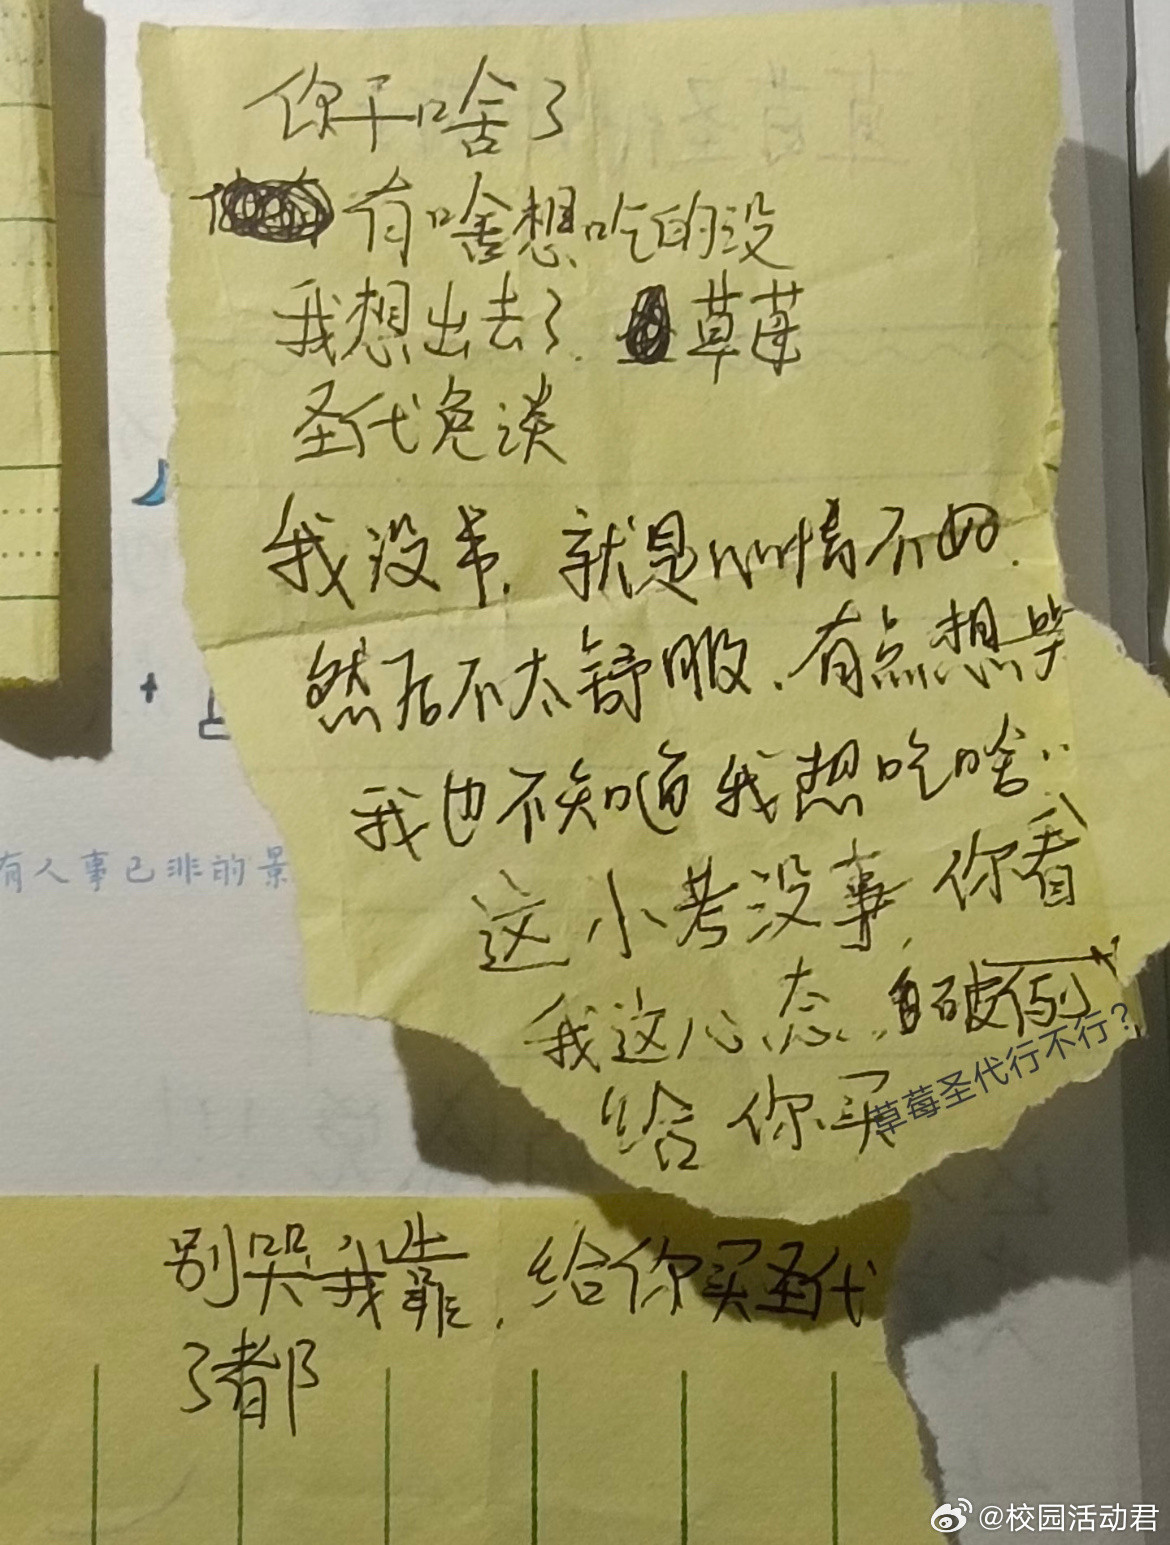 你干啥了
有啥想吃的没
我想出去了.草莓
圣代免谈
我没书.就是心情不好.
然后不太舒服.有点想哭
我也不知道我想吃啥..
这小考没事,你看
我这心态..自破例
给你买
草莓圣代行不行?
别哭我靠.给你买圣代
了都
有人事已非的景
@校园活动君